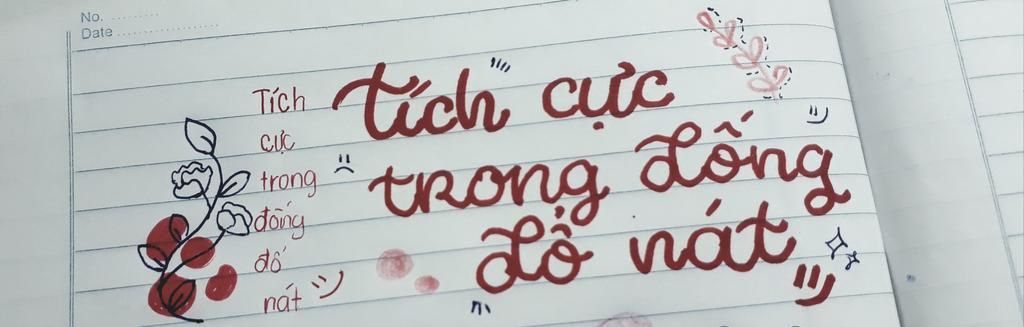 No.
Date
Tích
cực
trong
đống
đổ
nát
tích cực
trong đống
đổ nát